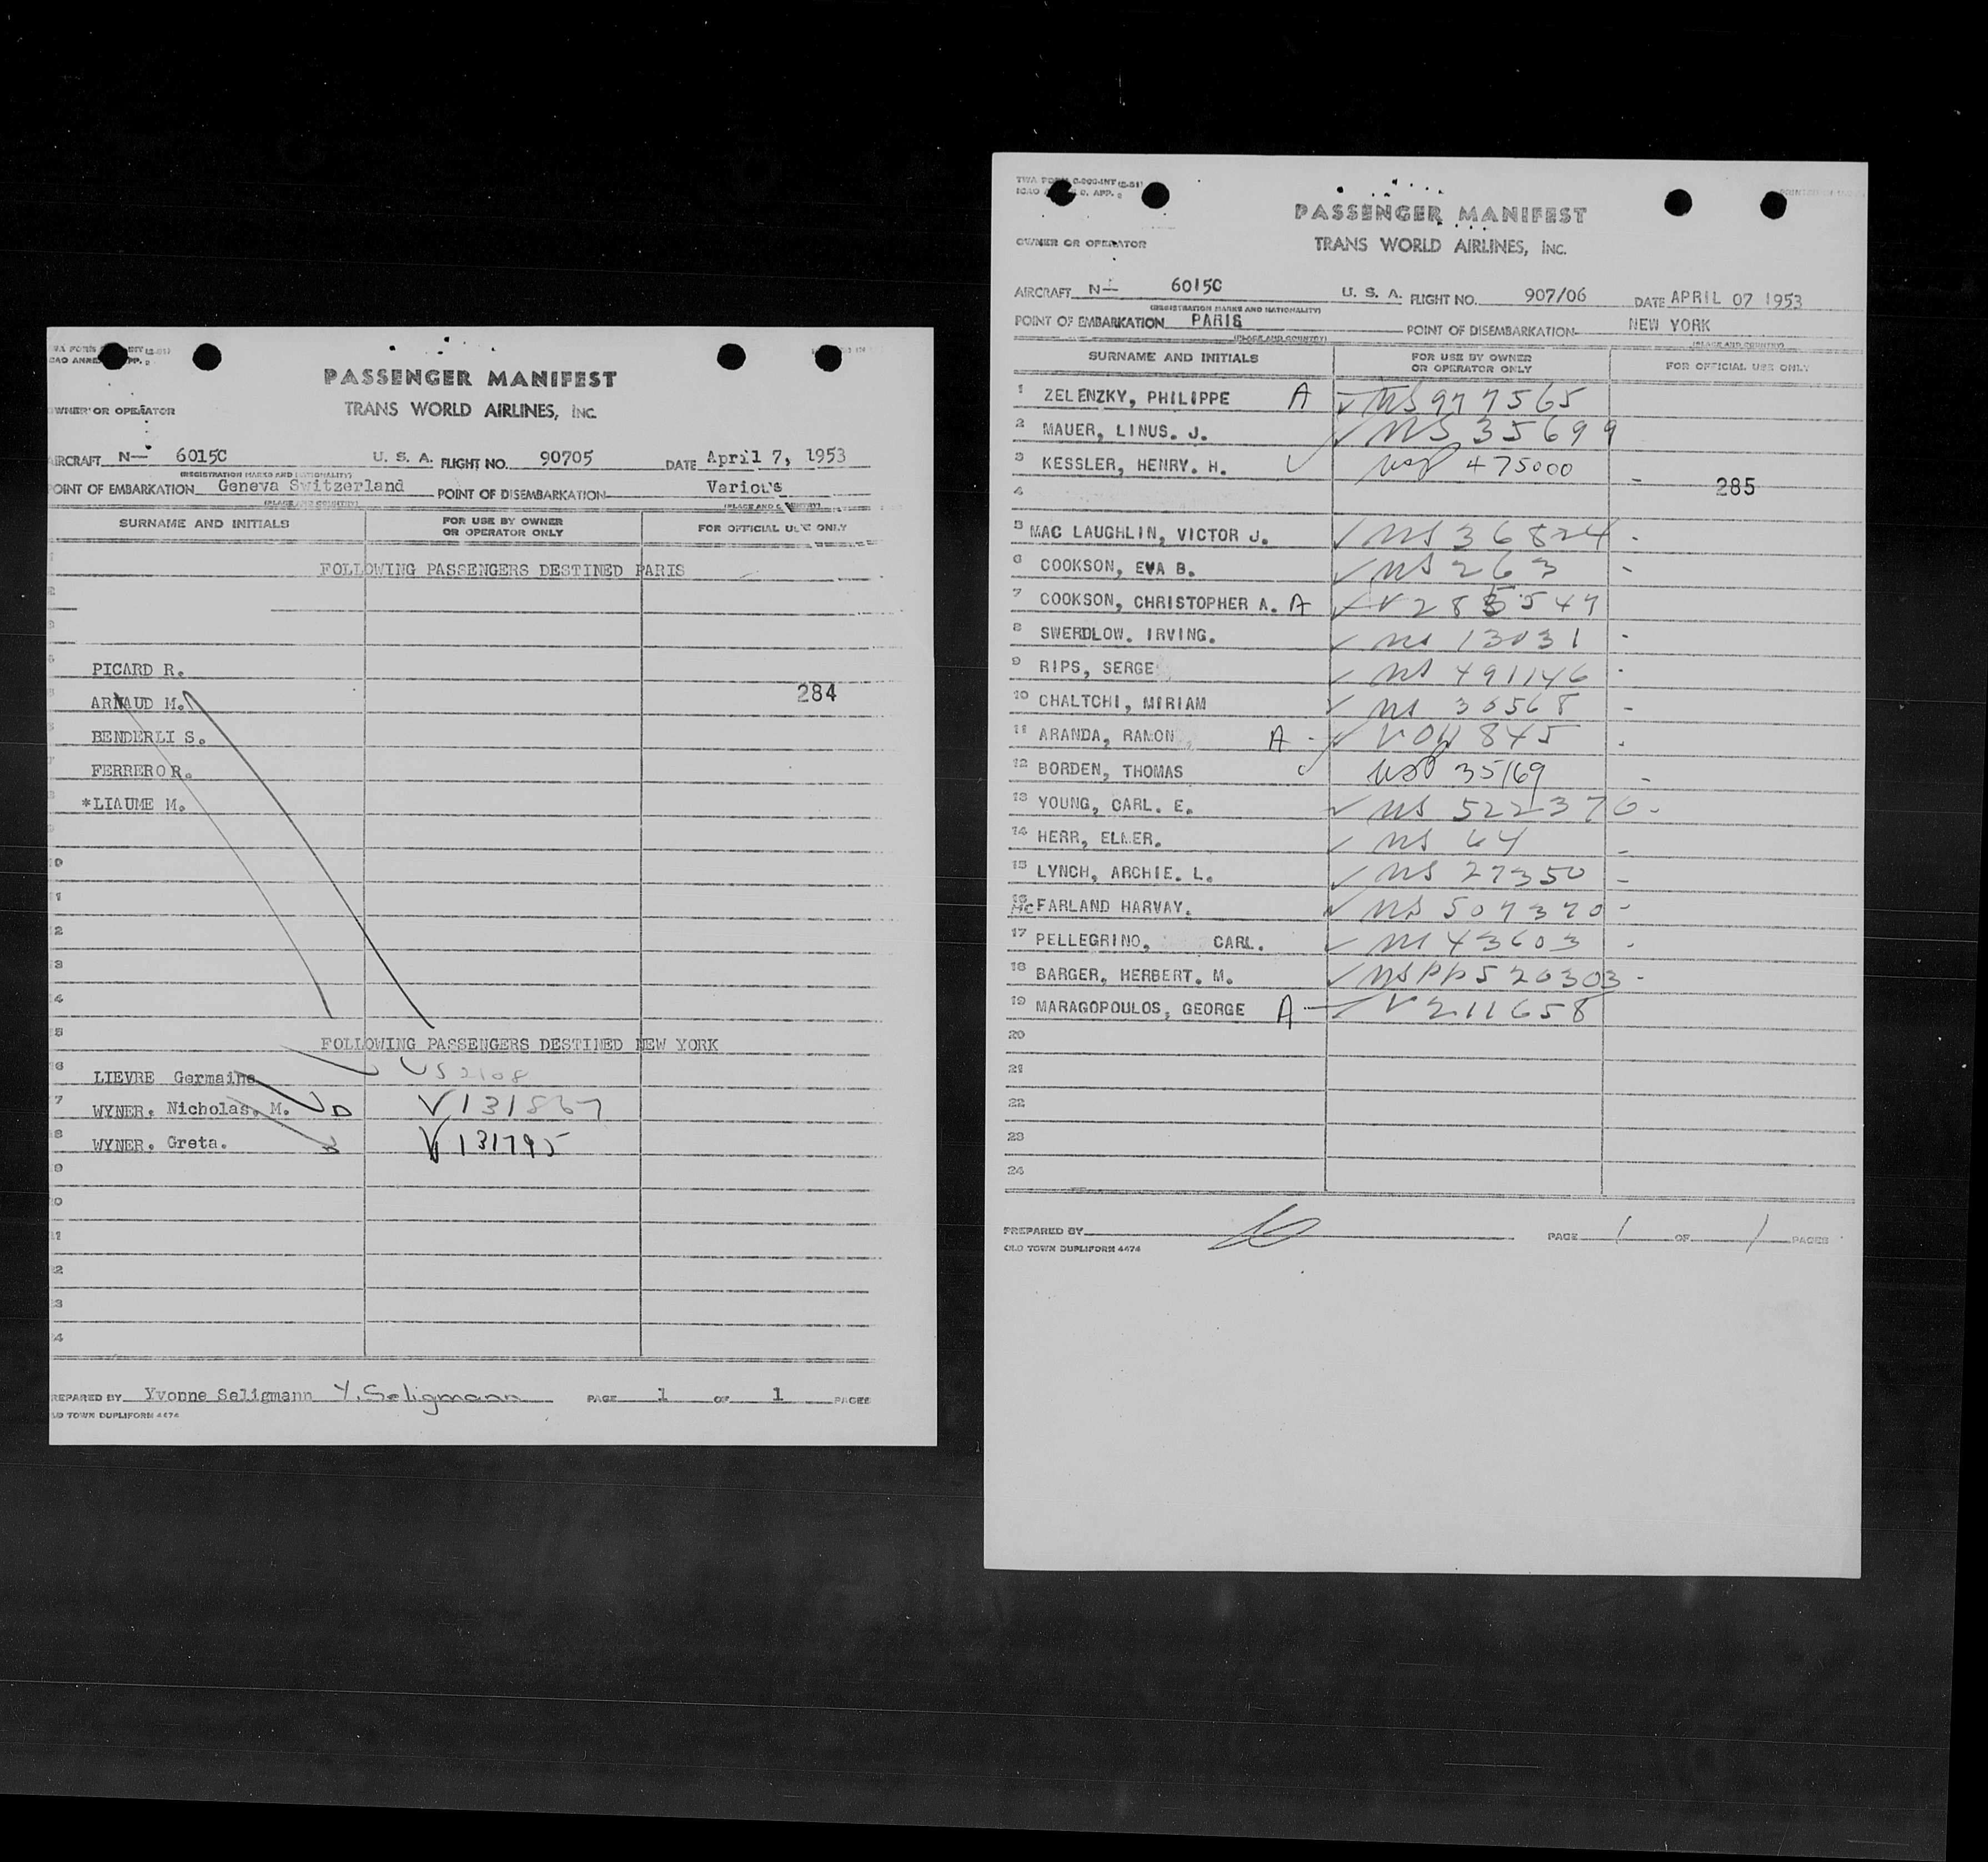 PASSENGER MANIFEST
OWNER OR OPERATOR TRANS WORLD AIRLINES, INC.
AIRCRAFT N— 6015C U. S. A. FLIGHT NO. 90705 DATE April 7, 1953
(REGISTRATION MARKS AND NATIONALITY)
POINT OF EMBARKATION Geneva Switzerland POINT OF DISEMBARKATION Various
(PLACE AND COUNTRY) (PLACE AND COUNTRY)
SURNAME AND INITIALS FOR USE BY OWNER OR OPERATOR ONLY FOR OFFICIAL USE ONLY
FOLLOWING PASSENGERS DESTINED PARIS
PICARD R.
ARNAUD M. 284
BENDERLI S.
FERRERO R.
*LIAUME M.
FOLLOWING PASSENGERS DESTINED NEW YORK
LIEVRE Germaine US 2108
WYNER. Nicholas. M. D V 131867
WYNER. Greta. V 131795
PREPARED BY Yvonne Seligmann Y. Seligmann PAGE 1 OF 1 PAGES
OLD TOWN DUPLIFORM 4474
PASSENGER MANIFEST
OWNER OR OPERATOR TRANS WORLD AIRLINES, INC.
AIRCRAFT N— 6015C U. S. A. FLIGHT NO. 907/06 DATE APRIL 07 1953
(REGISTRATION MARKS AND NATIONALITY)
POINT OF EMBARKATION PARIS POINT OF DISEMBARKATION NEW YORK
(PLACE AND COUNTRY) (PLACE AND COUNTRY)
SURNAME AND INITIALS FOR USE BY OWNER OR OPERATOR ONLY FOR OFFICIAL USE ONLY
1 ZELENZKY, PHILIPPE A US 977565
2 MAUER, LINUS. J. US 35699
3 KESSLER, HENRY. H. usp 475000
4 285
5 MAC LAUGHLIN, VICTOR J. US 36824
6 COOKSON, EVA B. US 263
7 COOKSON, CHRISTOPHER A. A V 285549
8 SWERDLOW. IRVING. US 13031
9 RIPS, SERGE US 491146
10 CHALTCHI, MIRIAM US 30568
11 ARANDA, RAMON A V 845
12 BORDEN, THOMAS usp 35169
13 YOUNG, CARL. E. US 522370
14 HERR, ELMER. US 64
15 LYNCH, ARCHIE. L. US 27350
16 Mc FARLAND HARVAY. US 507370
17 PELLEGRINO, CARL. US 43603
18 BARGER, HERBERT. M. US PP 520303
19 MARAGOPOULOS, GEORGE A V 211658
20
21
22
23
24
PREPARED BY PAGE 1 OF 1 PAGES
OLD TOWN DUPLIFORM 4474